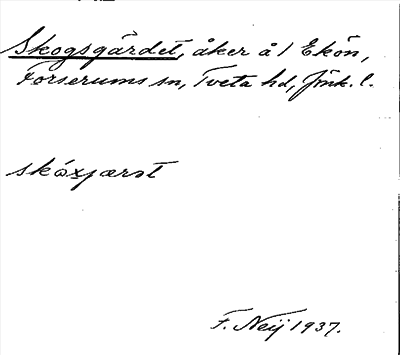 Skogsgärdet, åker å/ Ekön,
Forserums sn, Tveta hd, Jönk. l.
skóxjærət
F. Neij 1937.